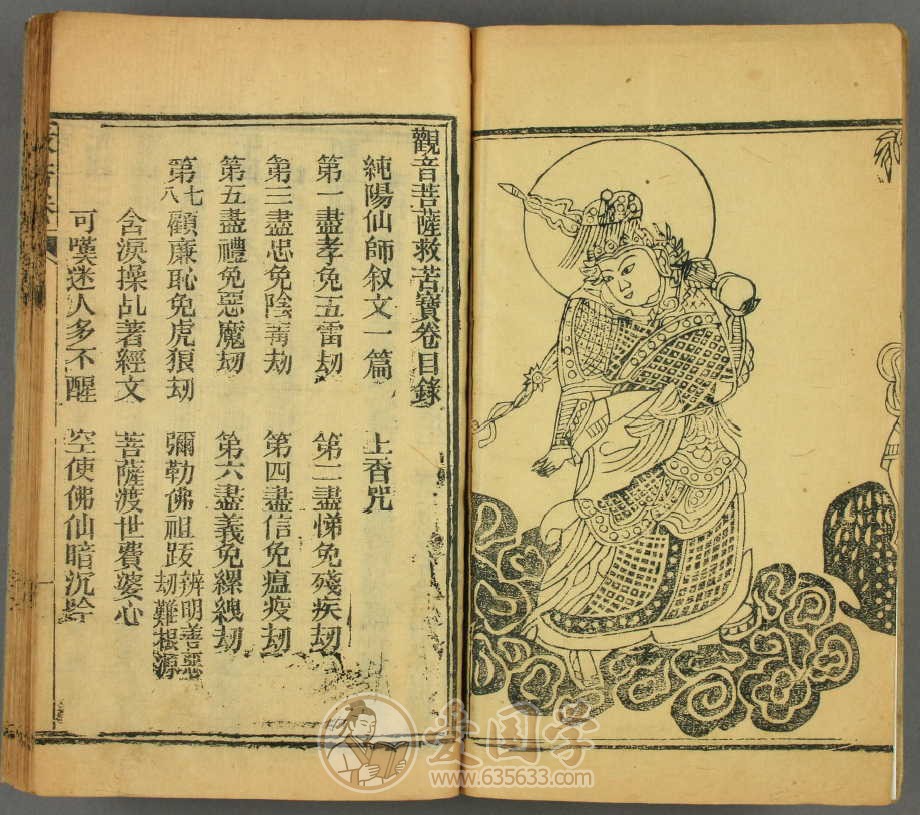 觀音菩薩救苦寶卷目錄
純陽仙師叙文一篇 上香咒
第一盡孝免五雷劫 第二盡悌免殘疾劫
第三盡忠免陰霽劫 第四盡信免瘟疫劫
第五盡禮免惡魔劫 第六盡義免縲絏劫
第七八顧廉恥免虎狼刼 彌勒佛祖跋 辨明善惡刼難根源
含淚操乩著經文 菩薩渡世費婆心
可嘆迷人多不醒 空使佛仙暗沉吟
爱国学
www.635633.com